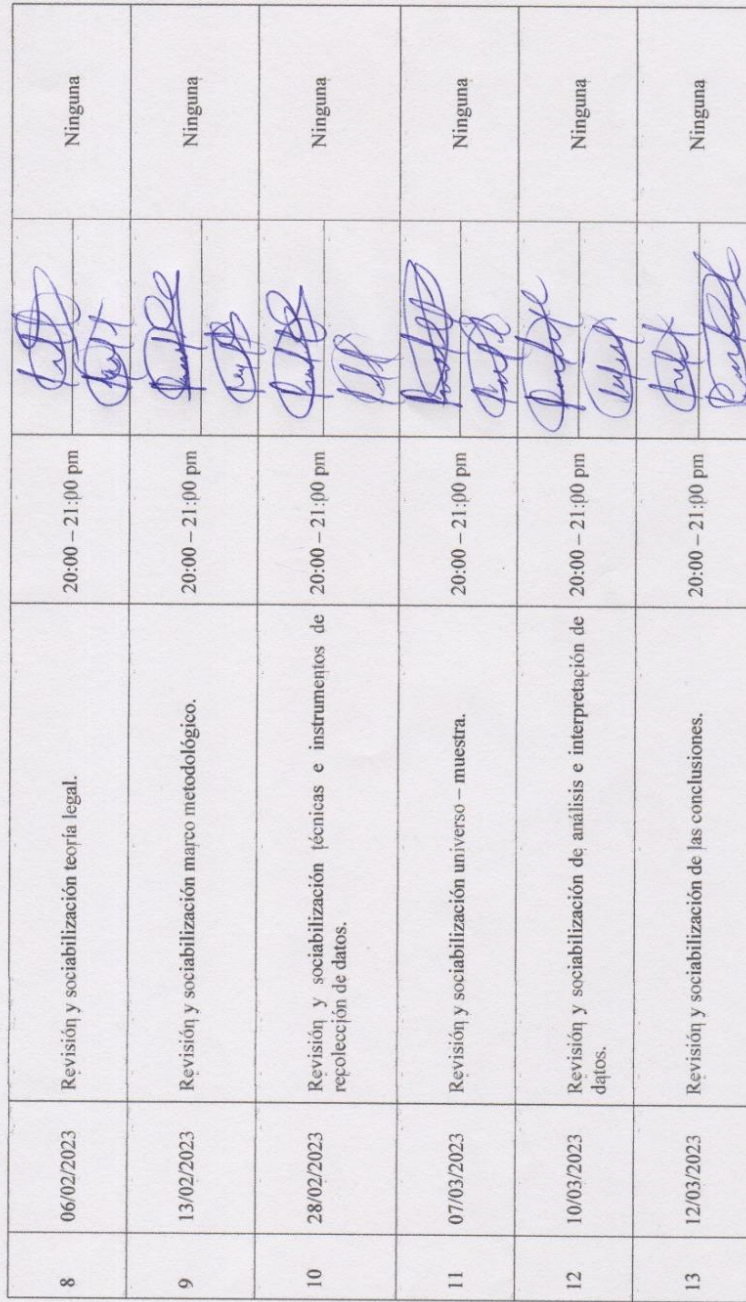 8 06/02/2023 Revisión y sociabilización teoría legal. 20:00 – 21:00 pm Ninguna
9 13/02/2023 Revisión y sociabilización marco metodológico. 20:00 – 21:00 pm Ninguna
10 28/02/2023 Revisión y sociabilización técnicas e instrumentos de
recolección de datos. 20:00 – 21:00 pm Ninguna
11 07/03/2023 Revisión y sociabilización universo – muestra. 20:00 – 21:00 pm Ninguna
12 10/03/2023 Revisión y sociabilización de análisis e interpretación de
datos. 20:00 – 21:00 pm Ninguna
13 12/03/2023 Revisión y sociabilización de las conclusiones. 20:00 – 21:00 pm Ninguna